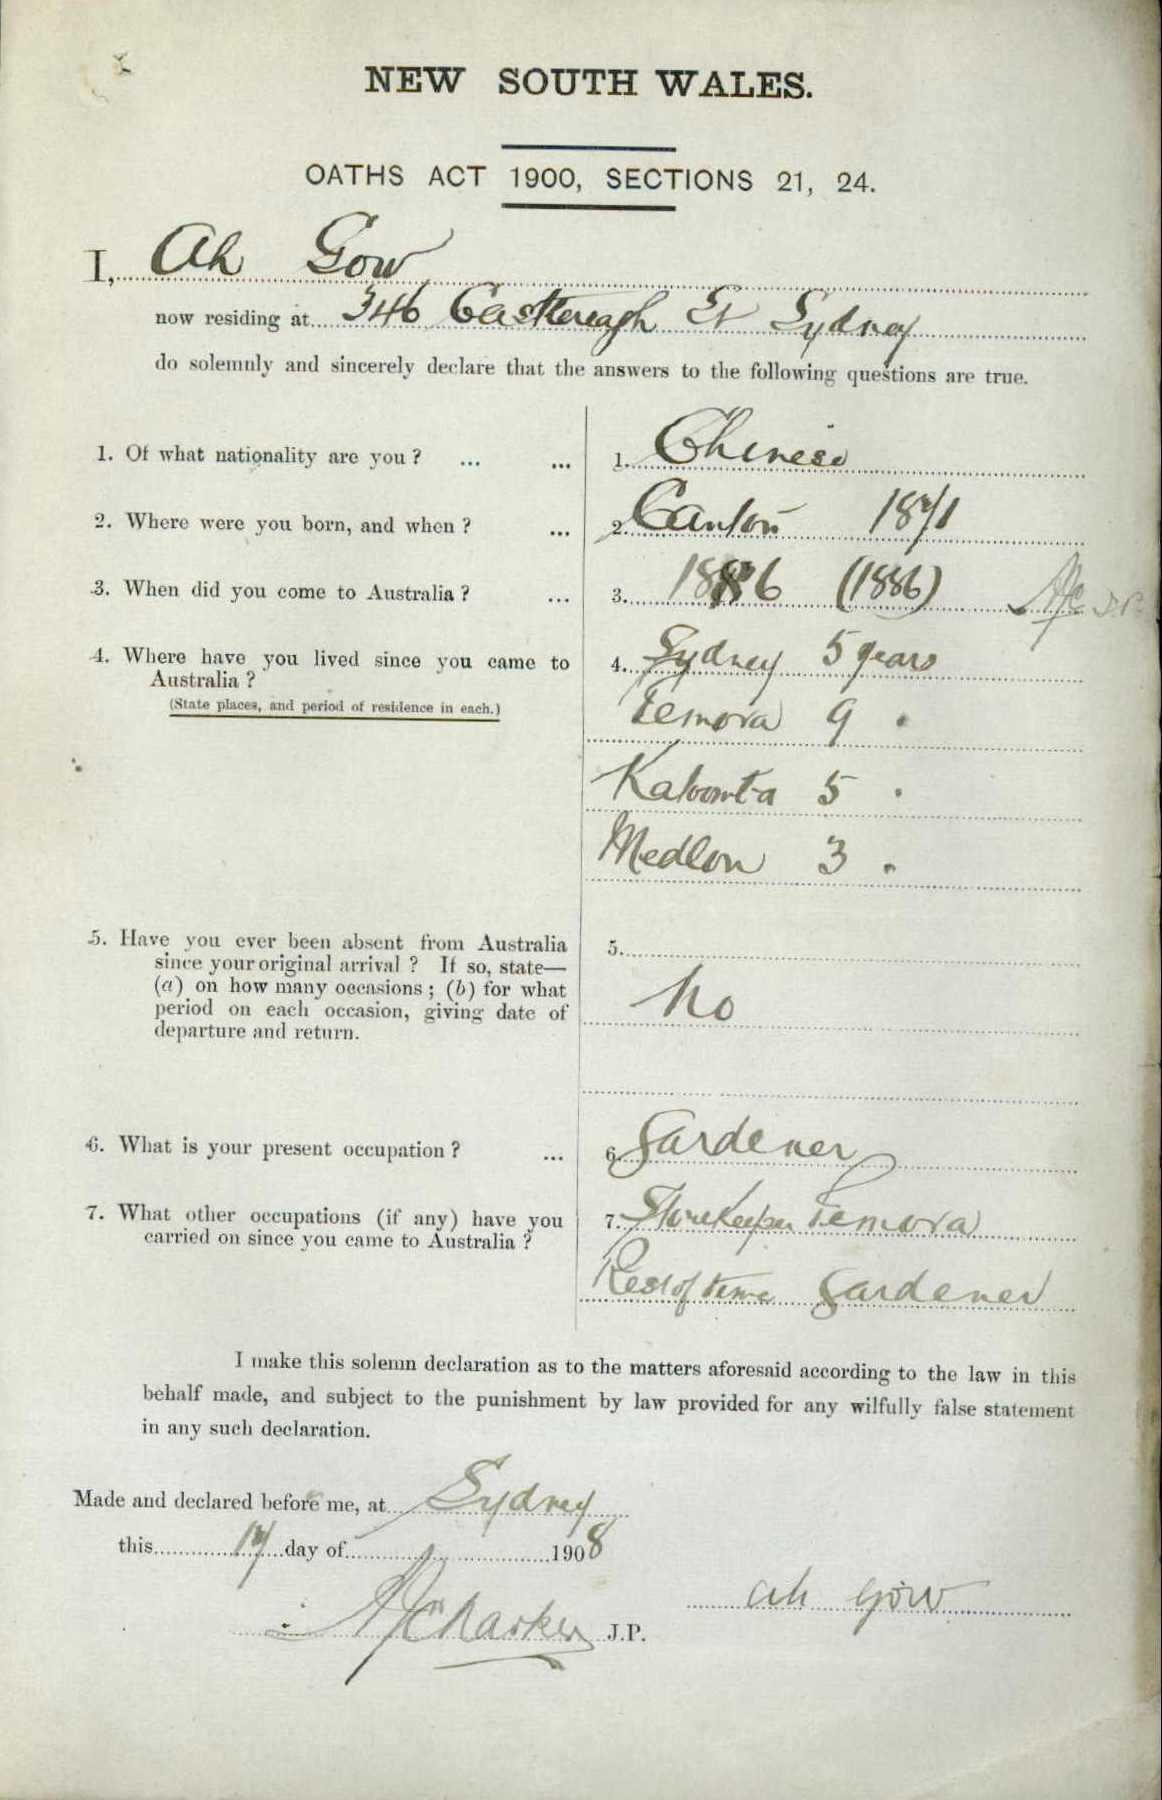 NEW SOUTH WALES.
OATHS ACT 1900, SECTIONS 21, 24.
I, Ah Gow
now residing at 346 Castlereagh St Sydney
do solemnly and sincerely declare that the answers to the following questions are true.
1. Of what nationality are you? ... ... 1. Chinese
2. Where were you born, and when? ... 2. Canton 1871
3. When did you come to Australia? ... 3. 1886 (1886) J.P.
4. Where have you lived since you came to 4. Sydney 5 years
Australia?
(State places, and period of residence in each.) Temora 9 "
5 "
3 "
5. Have you ever been absent from Australia 5.
since your original arrival? If so, state—
(a) on how many occasions; (b) for what No
period on each occasion, giving date of
departure and return.
6. What is your present occupation? ... 6. Gardener
7. What other occupations (if any) have you 7. Storekeeper Temora
carried on since you came to Australia?
Rest of time Gardener
I make this solemn declaration as to the matters aforesaid according to the law in this
behalf made, and subject to the punishment by law provided for any wilfully false statement
in any such declaration.
Made and declared before me, at Sydney
this 17 day of 1908
Ah Gow
J.P.